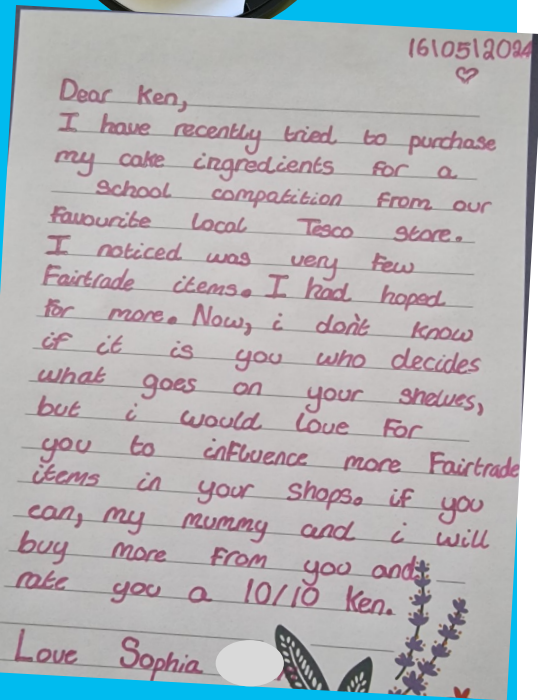 16\05\2024
Dear Ken,
I have recently tried to purchase
my cake ingredients for a
school compatition from our
favourite local Tesco store.
I noticed was very few
Fairtrade items. I had hoped
for more. Now, i don't know
if it is you who decides
what goes on your shelves,
but i would love for
you to influence more Fairtrade
items in your shops. if you
can, my mummy and i will
buy more from you and
rate you a 10/10 Ken.
Love Sophia